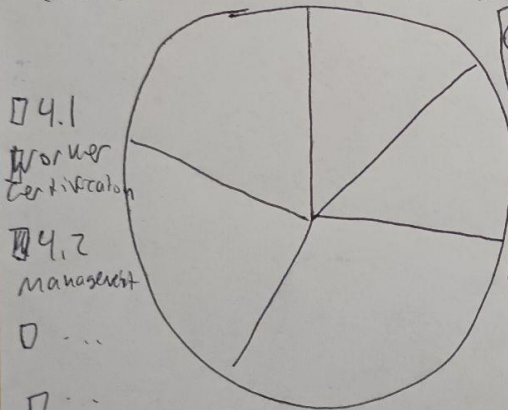 4.1
Worker
Certification
4.2
Management
...
...